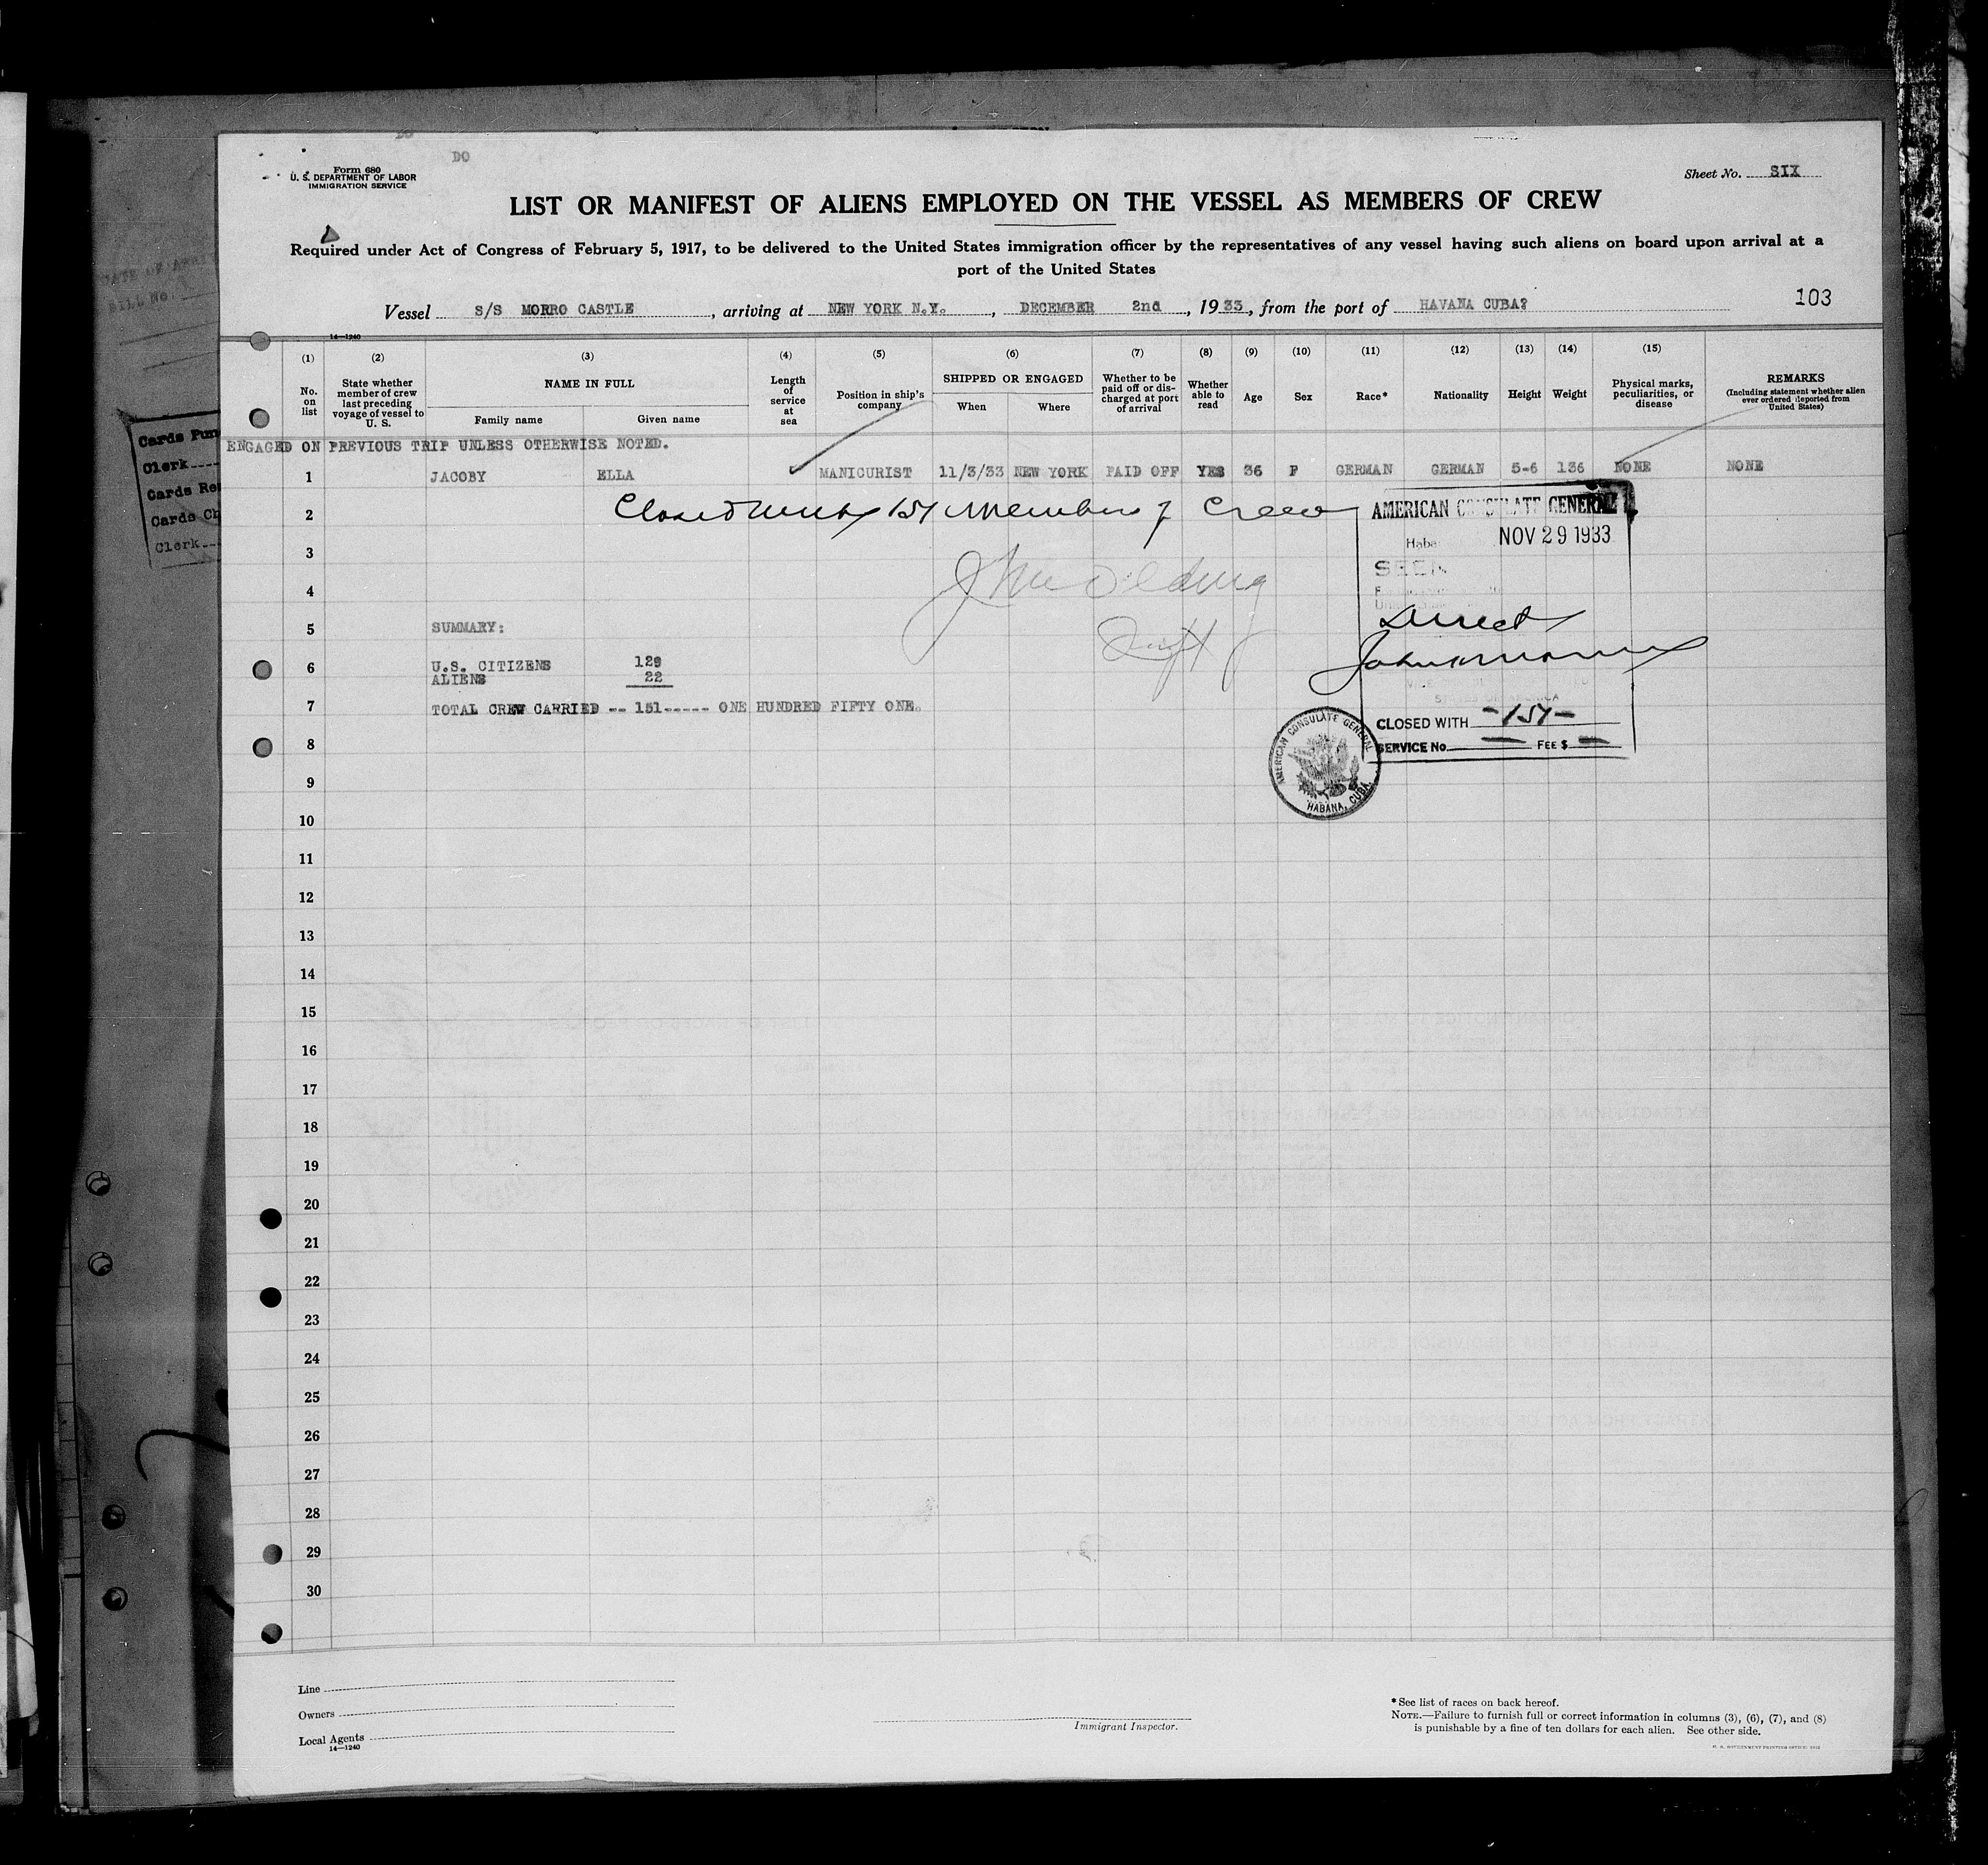 DO
Form 680
U. S. DEPARTMENT OF LABOR
IMMIGRATION SERVICE
Sheet No. SIX
LIST OR MANIFEST OF ALIENS EMPLOYED ON THE VESSEL AS MEMBERS OF CREW
Required under Act of Congress of February 5, 1917, to be delivered to the United States immigration officer by the representatives of any vessel having such aliens on board upon arrival at a
port of the United States
Vessel S/S MORRO CASTLE, arriving at NEW YORK N.Y., DECEMBER 2nd, 1933, from the port of HAVANA CUBA?
103
14—1240
(1) (2) (3) (4) (5) (6) (7) (8) (9) (10) (11) (12) (13) (14) (15)
No. on list
State whether member of crew last preceding voyage of vessel to U. S.
NAME IN FULL
Family name Given name
Length of service at sea
Position in ship's company
SHIPPED OR ENGAGED
When Where
Whether to be paid off or discharged at port of arrival
Whether able to read
Age
Sex
Race*
Nationality
Height
Weight
Physical marks, peculiarities, or disease
REMARKS
(Including statement whether alien ever ordered deported from United States)
ENGAGED ON PREVIOUS TRIP UNLESS OTHERWISE NOTED.
1 JACOBY ELLA MANICURIST 11/3/33 NEW YORK PAID OFF YES 36 F GERMAN GERMAN 5-6 136 NONE NONE
2 Closed with 151 Members of Crew
AMERICAN CONSULATE GENERAL
NOV 29 1933
SEEN
3
4
Direct
5 SUMMARY:
6 U.S. CITIZENS 129
ALIENS 22
7 TOTAL CREW CARRIED -- 151----- ONE HUNDRED FIFTY ONE.
CLOSED WITH -151-
SERVICE No. FEE $
AMERICAN CONSULATE GENERAL
HABANA, CUBA.
8
9
10
11
12
13
14
15
16
17
18
19
20
21
22
23
24
25
26
27
28
29
30
Line
Owners
Local Agents
14—1240
Immigrant Inspector.
* See list of races on back hereof.
NOTE.—Failure to furnish full or correct information in columns (3), (6), (7), and (8)
is punishable by a fine of ten dollars for each alien. See other side.
Clerk
Clerk